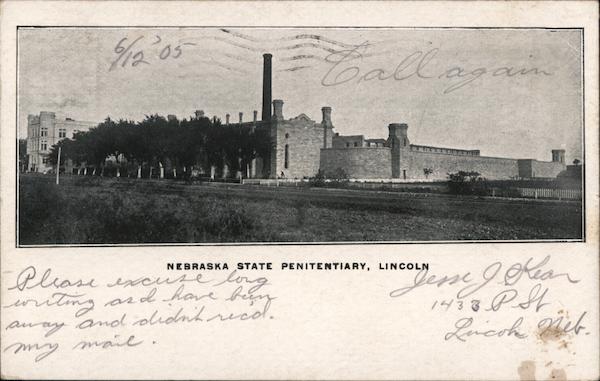 6/12 '05
Call again
NEBRASKA STATE PENITENTIARY, LINCOLN
Please excuse long
writing as I have been
away and didn't recd.
my mail.
Jesse J Kear
1433 P St
Lincoln Neb.